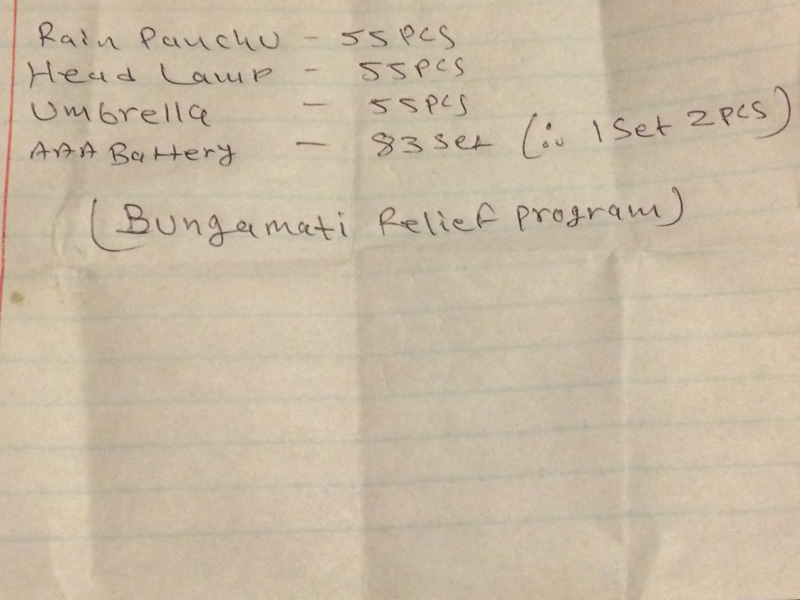 Rain Panchu - 55 PCS
Head Lamp - 55 PCS
Umbrella - 55 PCS
AAA Battery - 83 Set (∴ 1 Set 2 PCS)
(Bungamati Relief program)